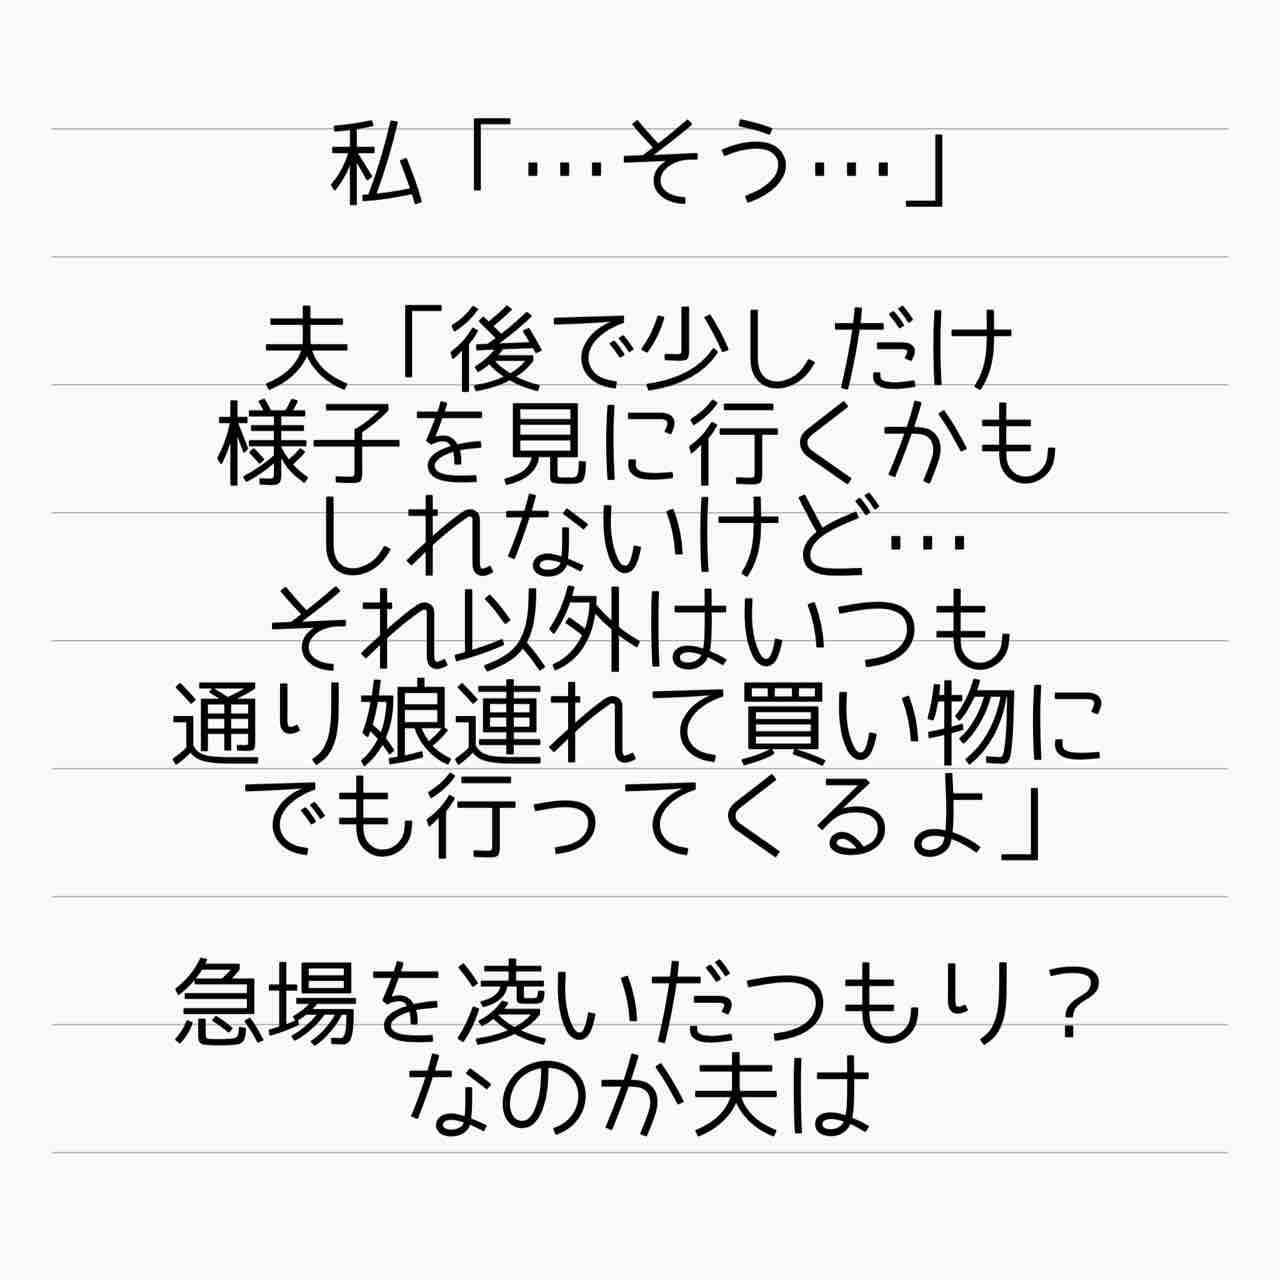 私「…そう…」
夫「後で少しだけ
様子を見に行くかも
しれないけど…
それ以外はいつも
通り娘連れて買い物に
でも行ってくるよ」
急場を凌いだつもり？
なのか夫は